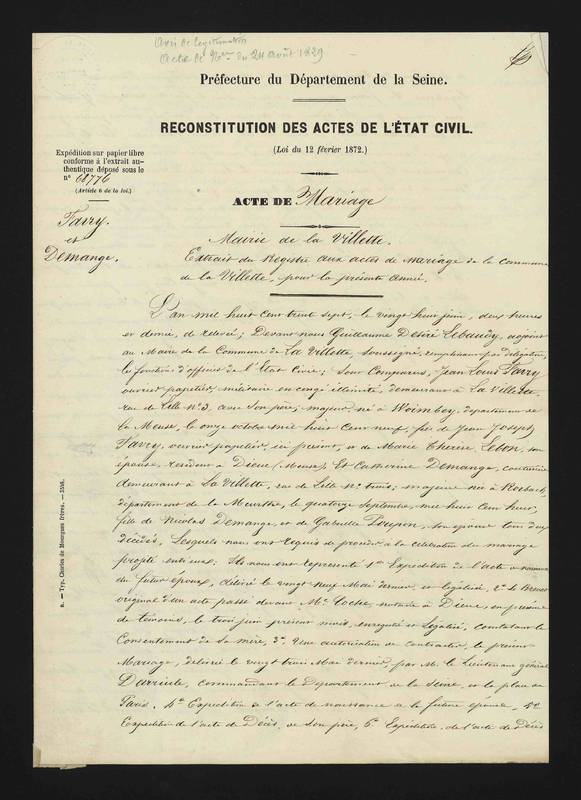 Avis de légitimation
Acte de N^ce du 24 août 1829
Préfecture du Département de la Seine.
RECONSTITUTION DES ACTES DE L'ÉTAT CIVIL.
(Loi du 12 février 1872.)
Expédition sur papier libre
conforme à l'extrait au-
thentique déposé sous le
n° 68776
(Article 6 de la loi.)
Favry.
et
Demange.
ACTE DE Mariage
Mairie de la Villette.
Extrait du Registre aux actes de Mariage de la Commune
de la Villette, pour la présente année.
L'an mil huit cent trente sept, le vingt huit juin, deux heures
et demie, de relevée; Devant nous Guillaume Désiré Lebaudy, adjoint
au Maire de la Commune de La Villette soussigné, remplissant par délégation,
les fonctions d'officier de l'Etat Civil; Sont Comparus, Jean Louis Favry
ouvrier papetier, militaire en congé illimité, demeurant à La Villette,
rue de Lille N° 3, avec son père; majeur né à Woimbey, département de
la Meuse, le onze octobre mil huit cent neuf, fils de Jean Joseph
Favry, ouvrier papetier, ici présent, et de Marie Thérèse Lebon, son
épouse, résident à Dieue (Meuse); Et Catherine Demange, couturière
demeurant à La Villette, rue de Lille N° trois, majeure née à
département de la Meurthe, le quatorze Septembre, mil huit cent huit,
fille de Nicolas Demange, et de Gabrielle Poupon, son épouse tous deux
décédés, Lesquels nous ont requis de procéder à la célébration du mariage
projeté entr'eux; Ils nous ont représenté 1° Expédition de l'acte de naissance
du futur époux, délivré le vingt neuf Mai dernier, et légalisé, 2° le Brevet
original d'un acte passé devant M^e notaire à Dieue, en présence
de témoins, le trois juin présent mois, enregistré et légalisé, contenant le
Consentement de sa mère, 3° Une autorisation de contracter, le présent
Mariage, délivrée le vingt trois Mai dernier, par M. le Lieutenant général
Darriule, commandant le Département de la Seine, et la place de
Paris, 4° Expédition de l'acte de naissance de la future épouse, 5°
Expédition de l'acte de Décès, de son père, 6° Expédition, de l'acte de Décès
n. — Typ. Charles de Mourgues frères. — 3598.